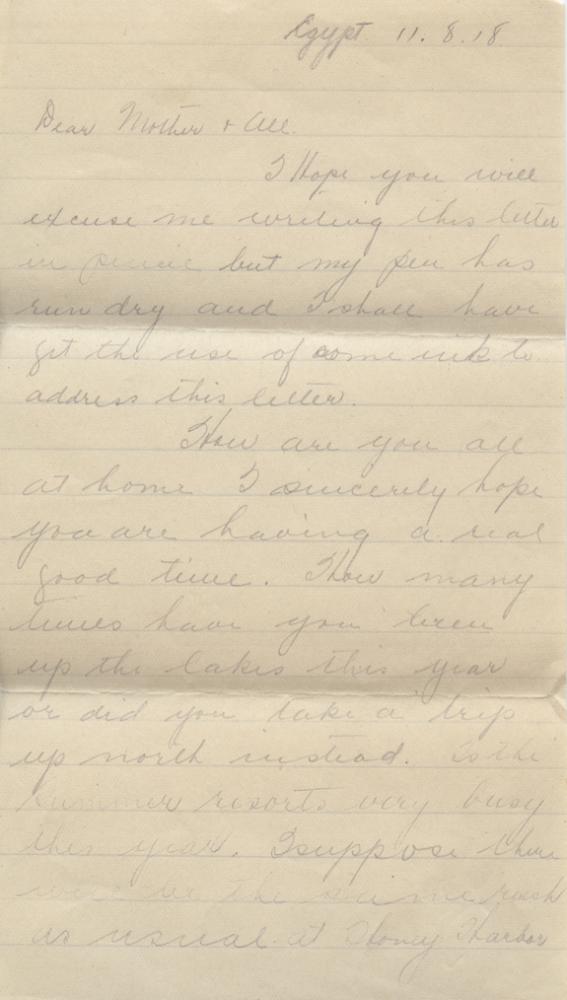 Egypt 11.8.18
Dear Mother & All.
I Hope you will
excuse me writing this letter
in pencil but my pen has
run dry and I shall have
get the use of some ink to
address this letter.
How are you all
at home I sincerely hope
you are having a real
good time. How many
times have you been
up the lakes this year
or did you take a trip
up north instead. Is the
summer resorts very busy
this year. I suppose there
will be the same rush
as usual at Honey Harbor